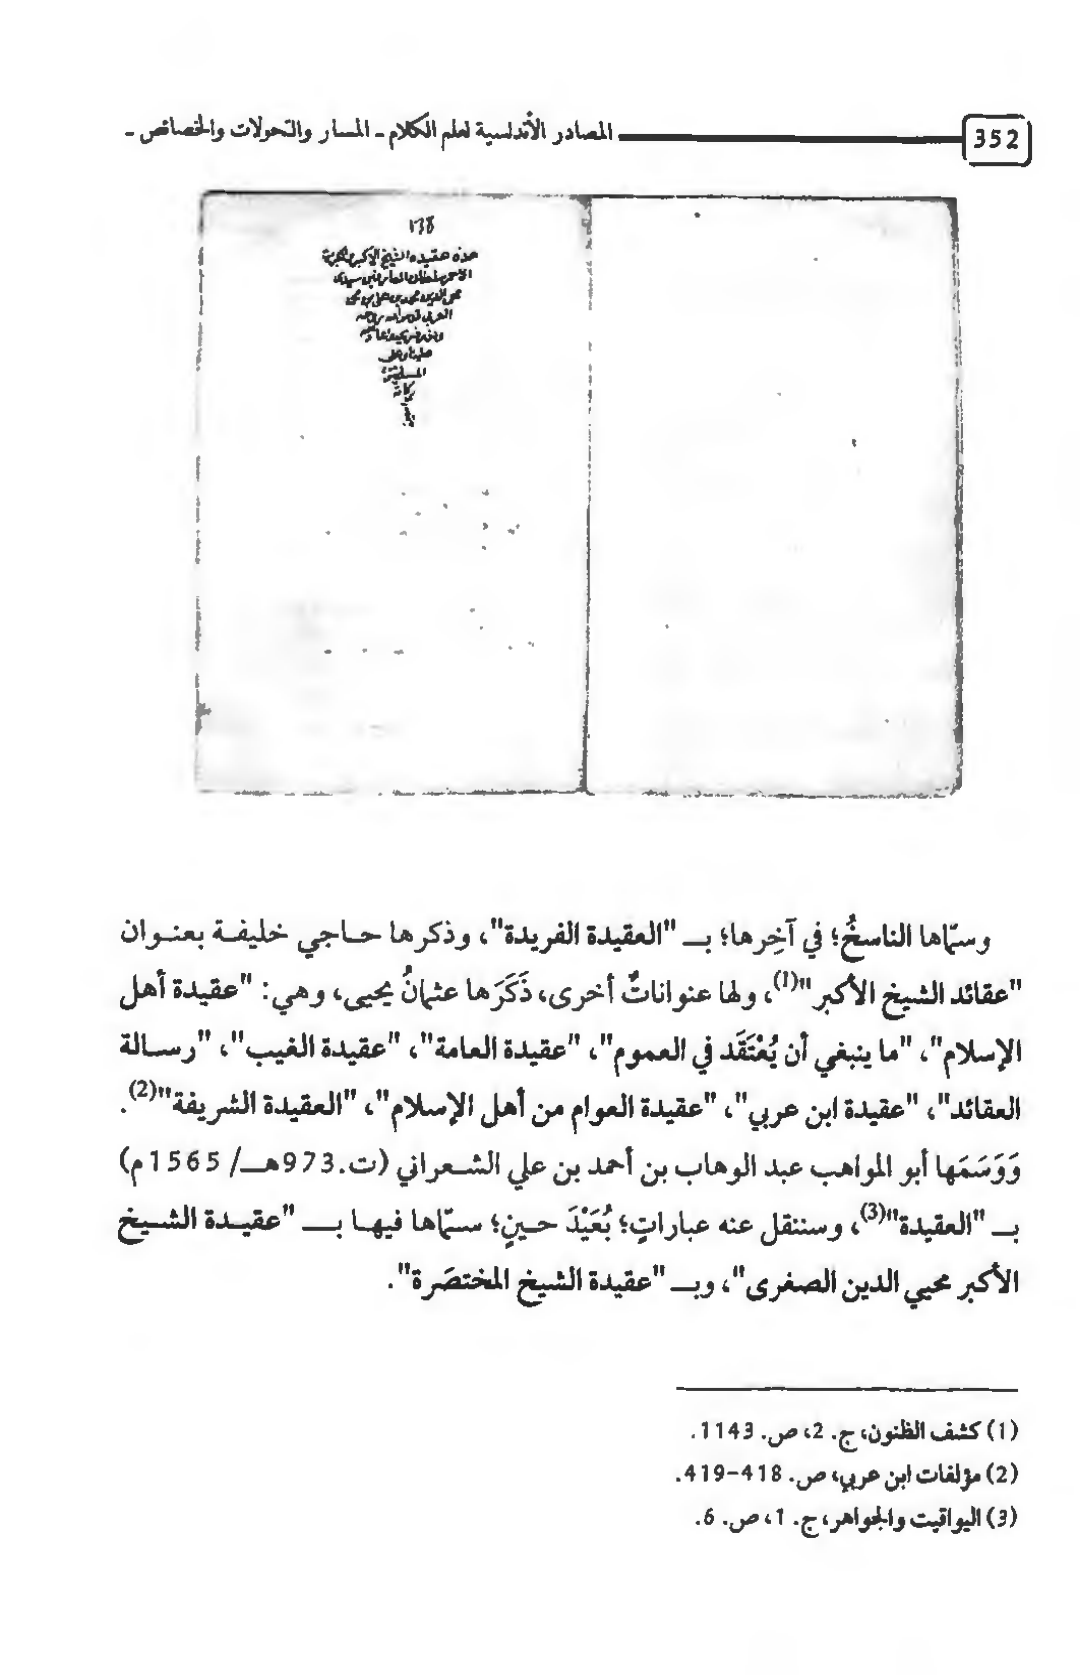 352
المصادر الأندلسية لعلم الكلام ـ المسار والتحولات والخصائص ـ
١٣٨
هذه عقيدة الشيخ الأكبر
الأحمر سلطان العارفين سيدي
محي الدين محمد بن علي بن محمد
العربي قدس الله روحه
علينا وعلى
المسلمين
وسمّاها الناسخُ؛ في آخِرها؛ بـ "العقيدة الفريدة"، وذكرها حاجي خليفة بعنوان
"عقائد الشيخ الأكبر"(1)، ولها عنواناتٌ أخرى، ذَكَرَها عثمانُ يحيى، وهي: "عقيدة أهل
الإسلام"، "ما ينبغي أن يُعْتَقَد في العموم"، "عقيدة العامة"، "عقيدة الغيب"، "رسالة
العقائد"، "عقيدة ابن عربي"، "عقيدة العوام من أهل الإسلام"، "العقيدة الشريفة"(2).
وَوَسَمَها أبو المواهب عبد الوهاب بن أحمد بن علي الشعراني (ت.973هـ/ 1565م)
بـ "العقيدة"(3)، وسننقل عنه عباراتٍ؛ بُعَيْدَ حينٍ؛ سمّاها فيها بـ "عقيدة الشيخ
الأكبر محيي الدين الصغرى"، وبـ "عقيدة الشيخ المختصَرة".
(1) كشف الظنون، ج. 2، ص. 1143.
(2) مؤلفات ابن عربي، ص. 418-419.
(3) اليواقيت والجواهر، ج. 1، ص. 6.